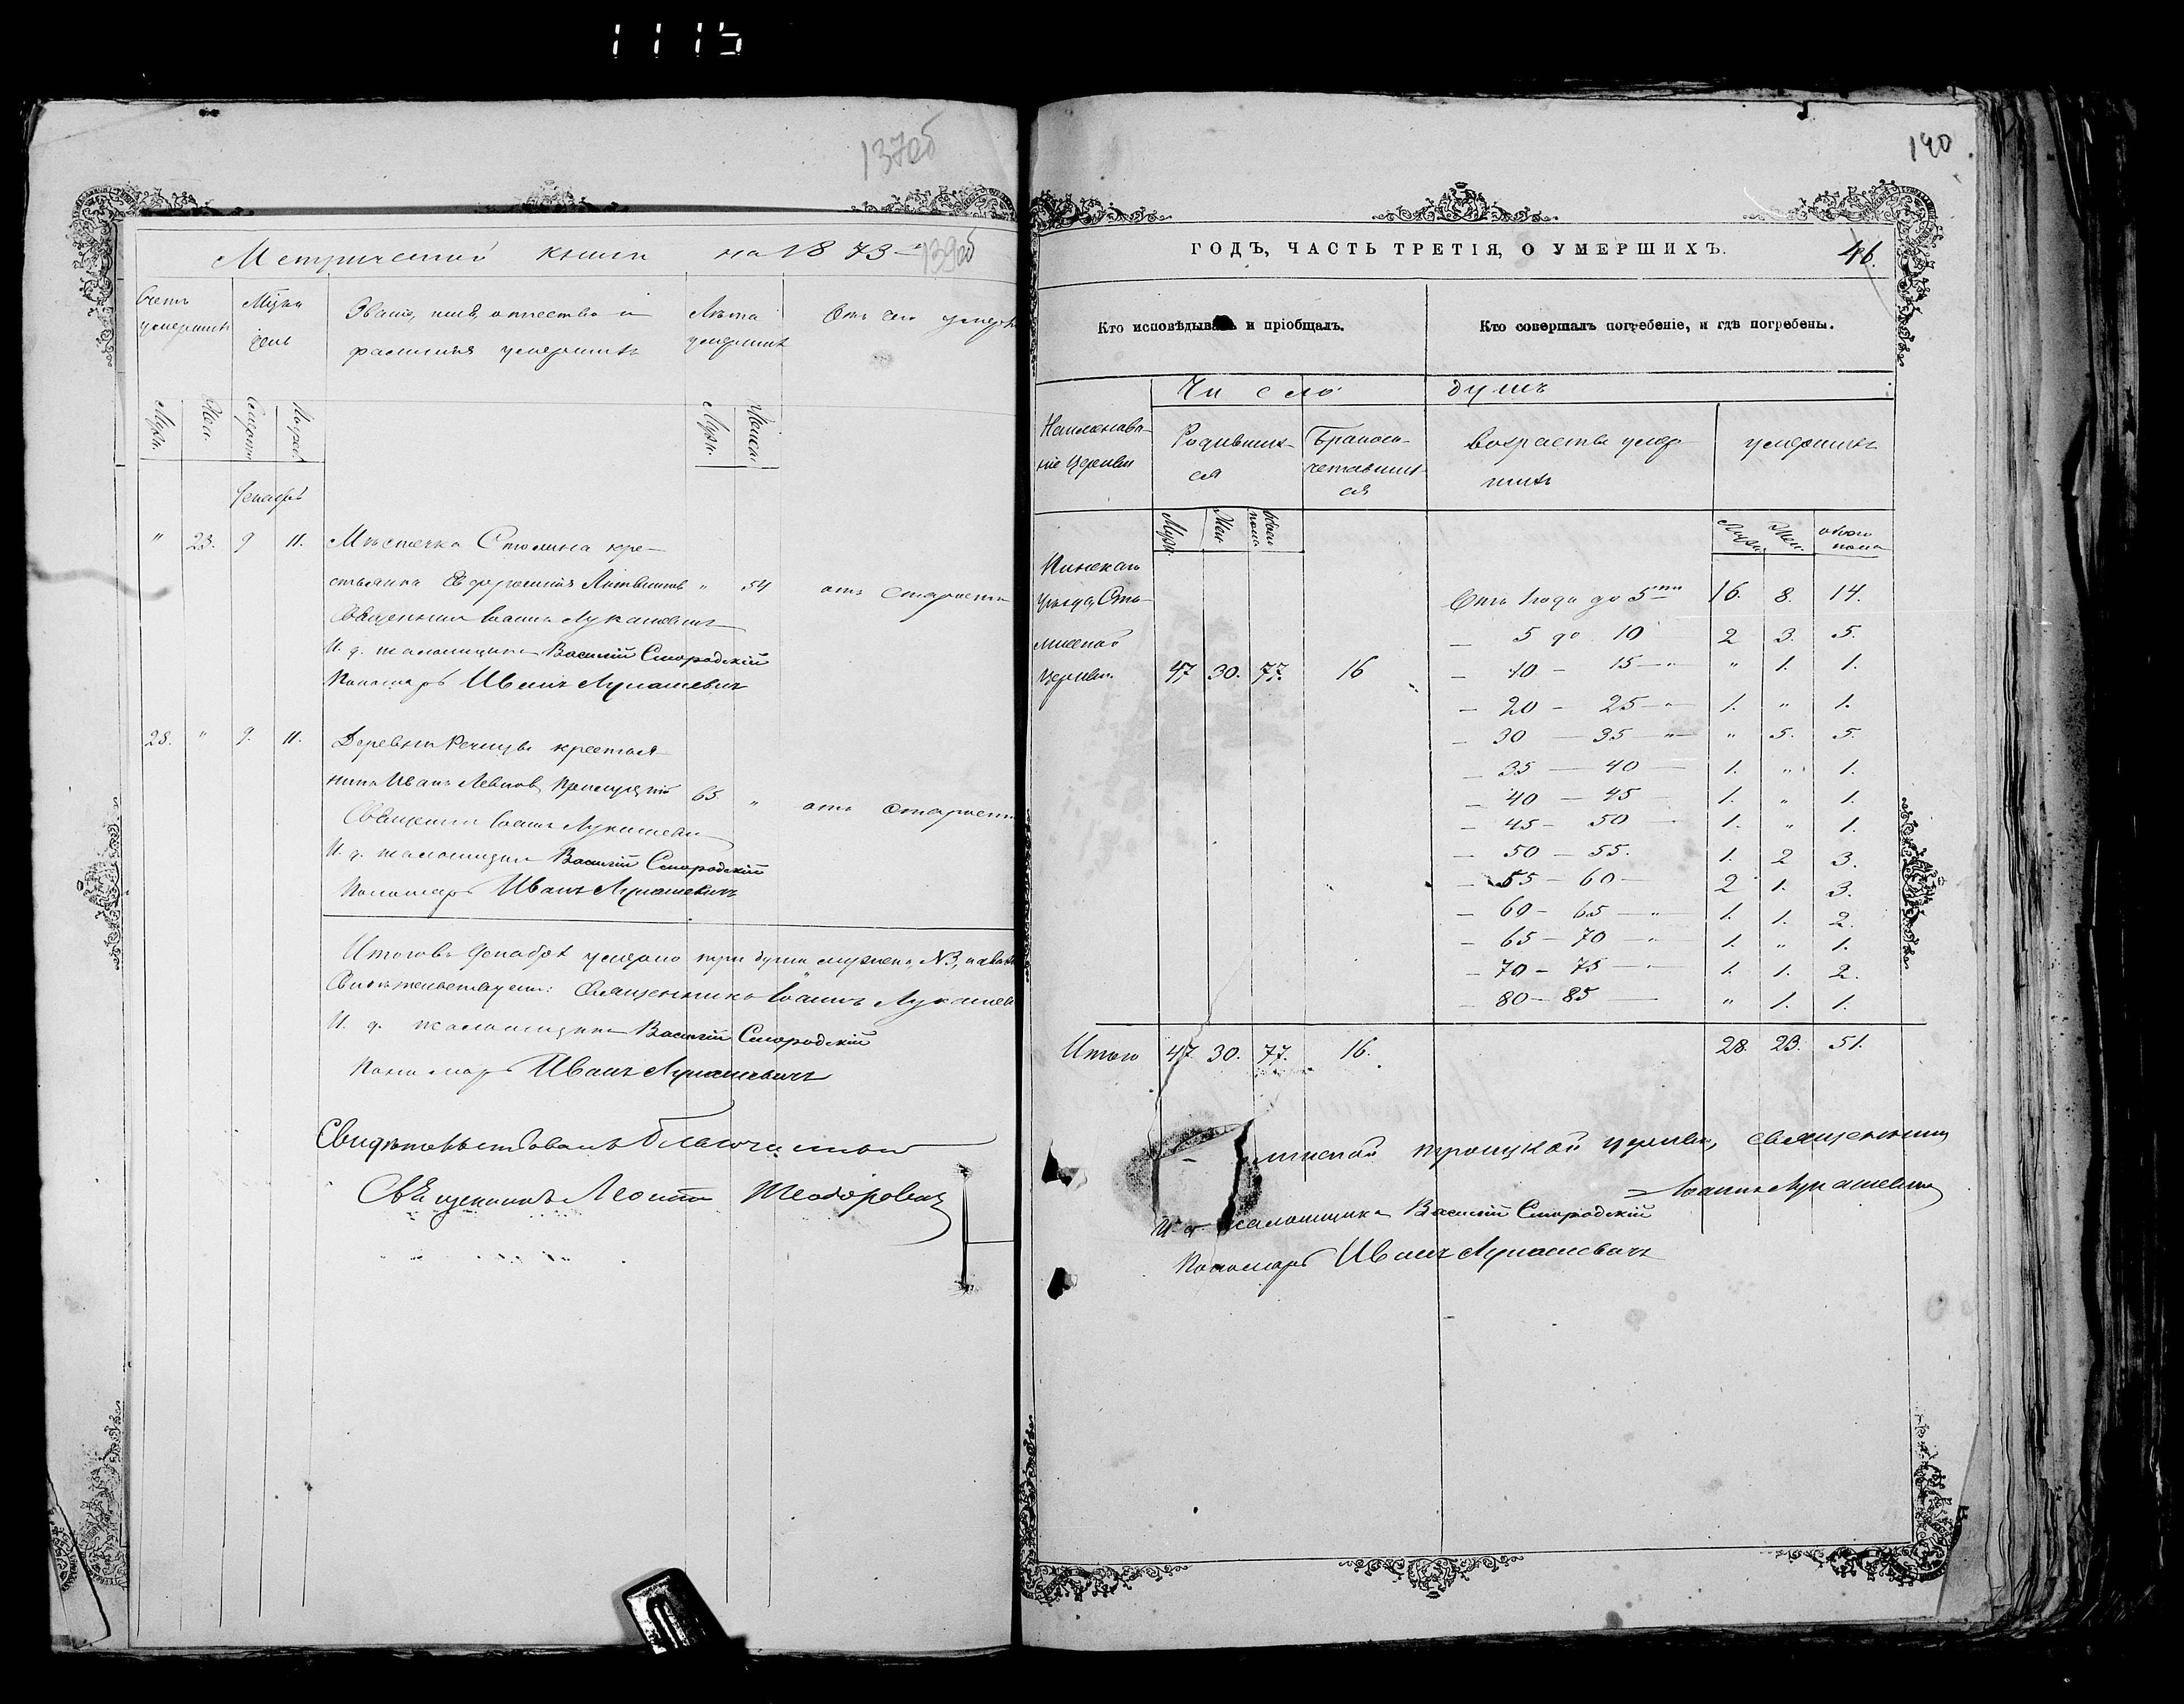 1115
137об
Метрической книги на 1873
139об
Счетъ умершихъ
Мѣсяцъ день
Званіе, имя, отчество и
фамилія умершихъ
Лѣта умершихъ
Отъ чего умерли
Муж. Жен. Смерти Погреб.
Муж. Женск.
Декабрь
" 23. 9 11. Мѣстечка Столина кре-
стьянка Евфросинія Литвинова " 54 отъ старости
Священникъ Іоаннъ Лукашевичъ
И. д. псаломщика Василій Смородскій
Пономарь Иванъ Лукашевичъ
28. " 9. 11. Деревни Речицы крестья-
нинъ Иванъ Левковъ 65 " отъ старости
Священникъ Іоаннъ Лукашевичъ
И. д. псаломщика Василій Смородскій
Пономарь Иванъ Лукашевичъ
Итого въ Декабрѣ умерло три души мужеска, №3,
Свидѣтельствуемъ: Священникъ Іоаннъ Лукашев
И. д. псаломщика Василій Смородскій
Пономарь Иванъ Лукашевичъ
Свидѣтельствовалъ благочинный
Священникъ Леонтій Теодоровичъ
140
ГОДЪ, ЧАСТЬ ТРЕТІЯ, О УМЕРШИХЪ.
46.
Кто исповѣдывалъ и пріобщалъ.
Кто совершалъ погребеніе, и гдѣ погребены.
Число душъ
Наименова-
ніе церкви
Родивших-
ся
Бракосо-
четавших-
ся
Возрасты умер-
шихъ
умершихъ
Муж. Жен. Обоего пола
Муж. Жен. обоего пола
Пинскаго
уѣзда Сто-
линской
церкви. 47 30. 77. 16
Отъ 1 года до 5ти 16. 8. 14.
— 5 до 10 2 3. 5.
— 10 — 15 — " " 1. 1.
— 20 — 25 — " 1. " 1.
— 30 — 35 — " " 5. 5.
— 35 — 40 — 1. " 1.
— 40 — 45 — 1. " 1.
— 45 — 50 — 1. " 1.
— 50 — 55. 1. 2 3.
— 55 — 60 — 2 1. 3.
— 60 — 65 — " 1. 1. 2.
— 65 — 70 — " 1. " 1.
— 70 — 75 — " 1. 1. 2.
— 80 — 85 — " 1. 1.
Итого 47 30. 77. 16. 28. 23. 51.
линской троицкой церкви, священникъ
Іоаннъ Лукашевичъ
И. д. псаломщика Василій Смородскій
Пономарь Иванъ Лукашевичъ